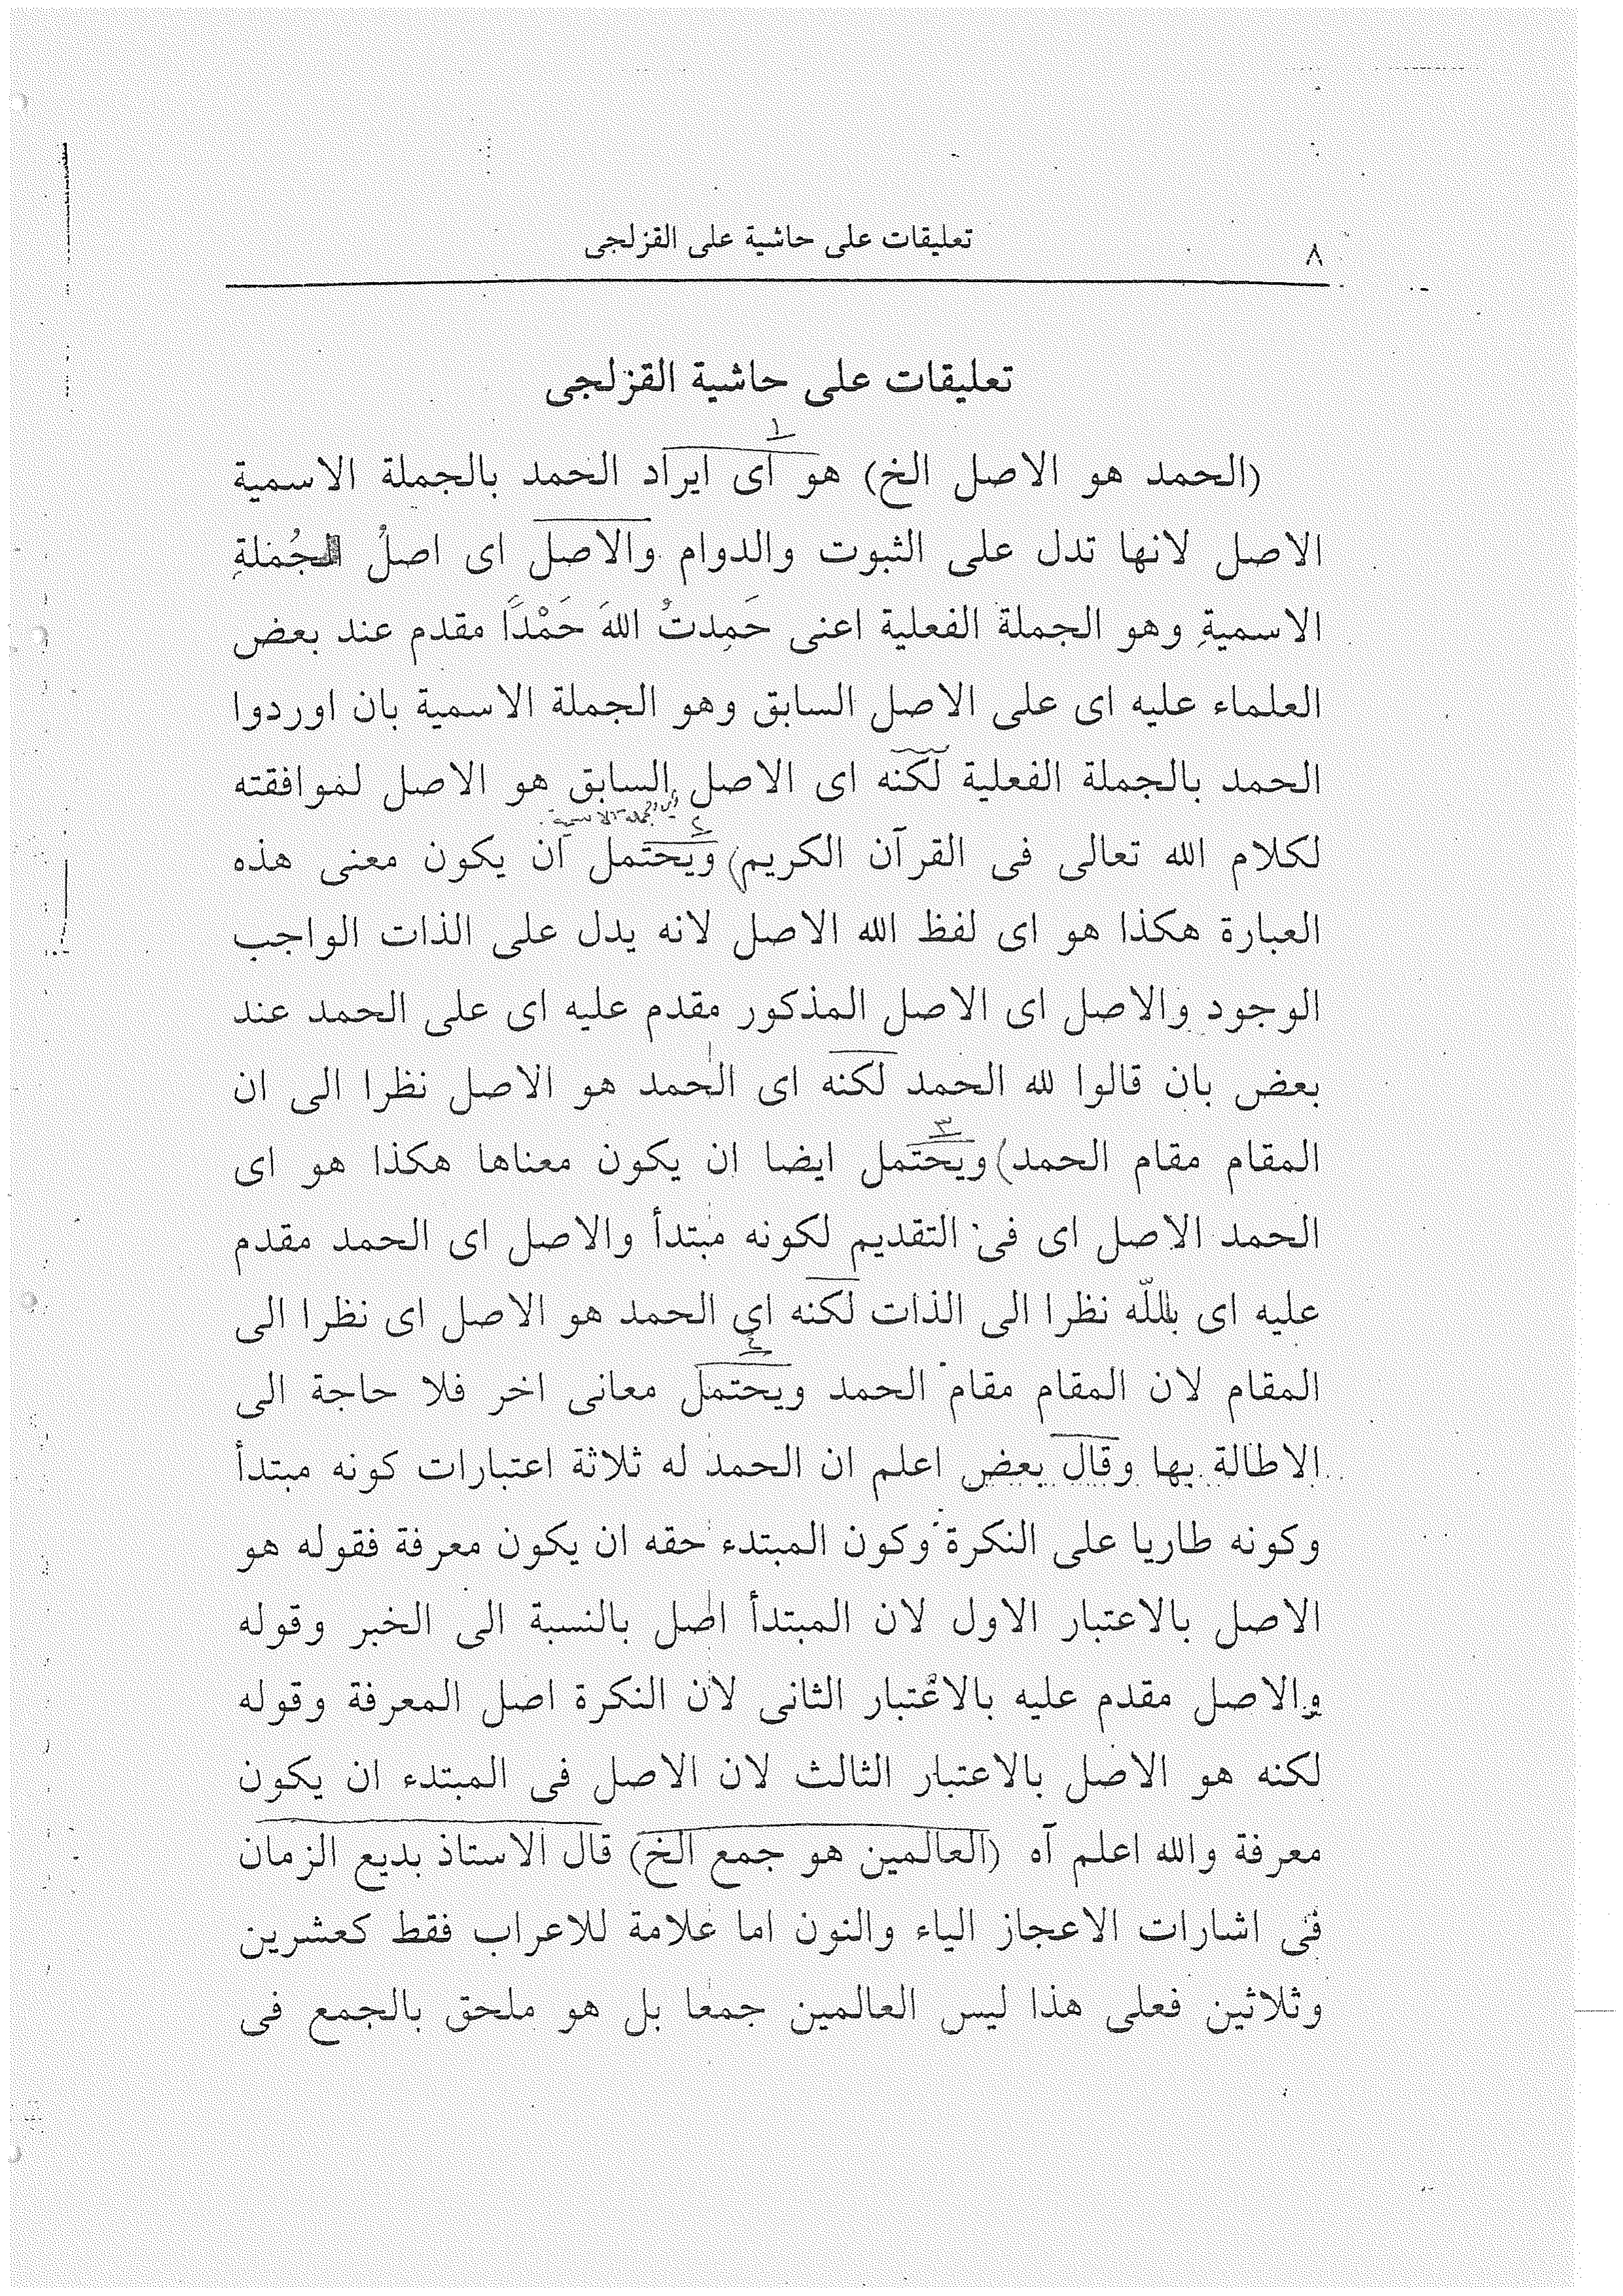 تعليقات على حاشية على القزلجى
٨
تعليقات على حاشية القزلجى
١
(الحمد هو الاصل الخ) هو اى ايراد الحمد بالجملة الاسمية
الاصل لانها تدل على الثبوت والدوام والاصل اى اصلُ الجُملةِ
الاسميةِ وهو الجملة الفعلية اعنى حَمِدتُ اللهَ حَمْدًا مقدم عند بعض
العلماء عليه اى على الاصل السابق وهو الجملة الاسمية بان اوردوا
الحمد بالجملة الفعلية لكنه اى الاصل السابق هو الاصل لموافقته
٢
لكلام الله تعالى فى القرآن الكريم) ويحتمل ان يكون معنى هذه
العبارة هكذا هو اى لفظ الله الاصل لانه يدل على الذات الواجب
الوجود والاصل اى الاصل المذكور مقدم عليه اى على الحمد عند
بعض بان قالوا لله الحمد لكنه اى الحمد هو الاصل نظرا الى ان
٣
المقام مقام الحمد) ويحتمل ايضا ان يكون معناها هكذا هو اى
الحمد الاصل اى فى التقديم لكونه مبتدأ والاصل اى الحمد مقدم
عليه اى بالله نظرا الى الذات لكنه اى الحمد هو الاصل اى نظرا الى
٤
المقام لان المقام مقام الحمد ويحتمل معانى اخر فلا حاجة الى
الاطالة بها وقال بعض اعلم ان الحمد له ثلاثة اعتبارات كونه مبتدأ
وكونه طاريا على النكرة وكون المبتدء حقه ان يكون معرفة فقوله هو
الاصل بالاعتبار الاول لان المبتدأ اصل بالنسبة الى الخبر وقوله
والاصل مقدم عليه بالاعتبار الثانى لان النكرة اصل المعرفة وقوله
لكنه هو الاصل بالاعتبار الثالث لان الاصل فى المبتدء ان يكون
معرفة والله اعلم آه (العالمين هو جمع الخ) قال الاستاذ بديع الزمان
فى اشارات الاعجاز الياء والنون اما علامة للاعراب فقط كعشرين
وثلاثين فعلى هذا ليس العالمين جمعا بل هو ملحق بالجمع فى